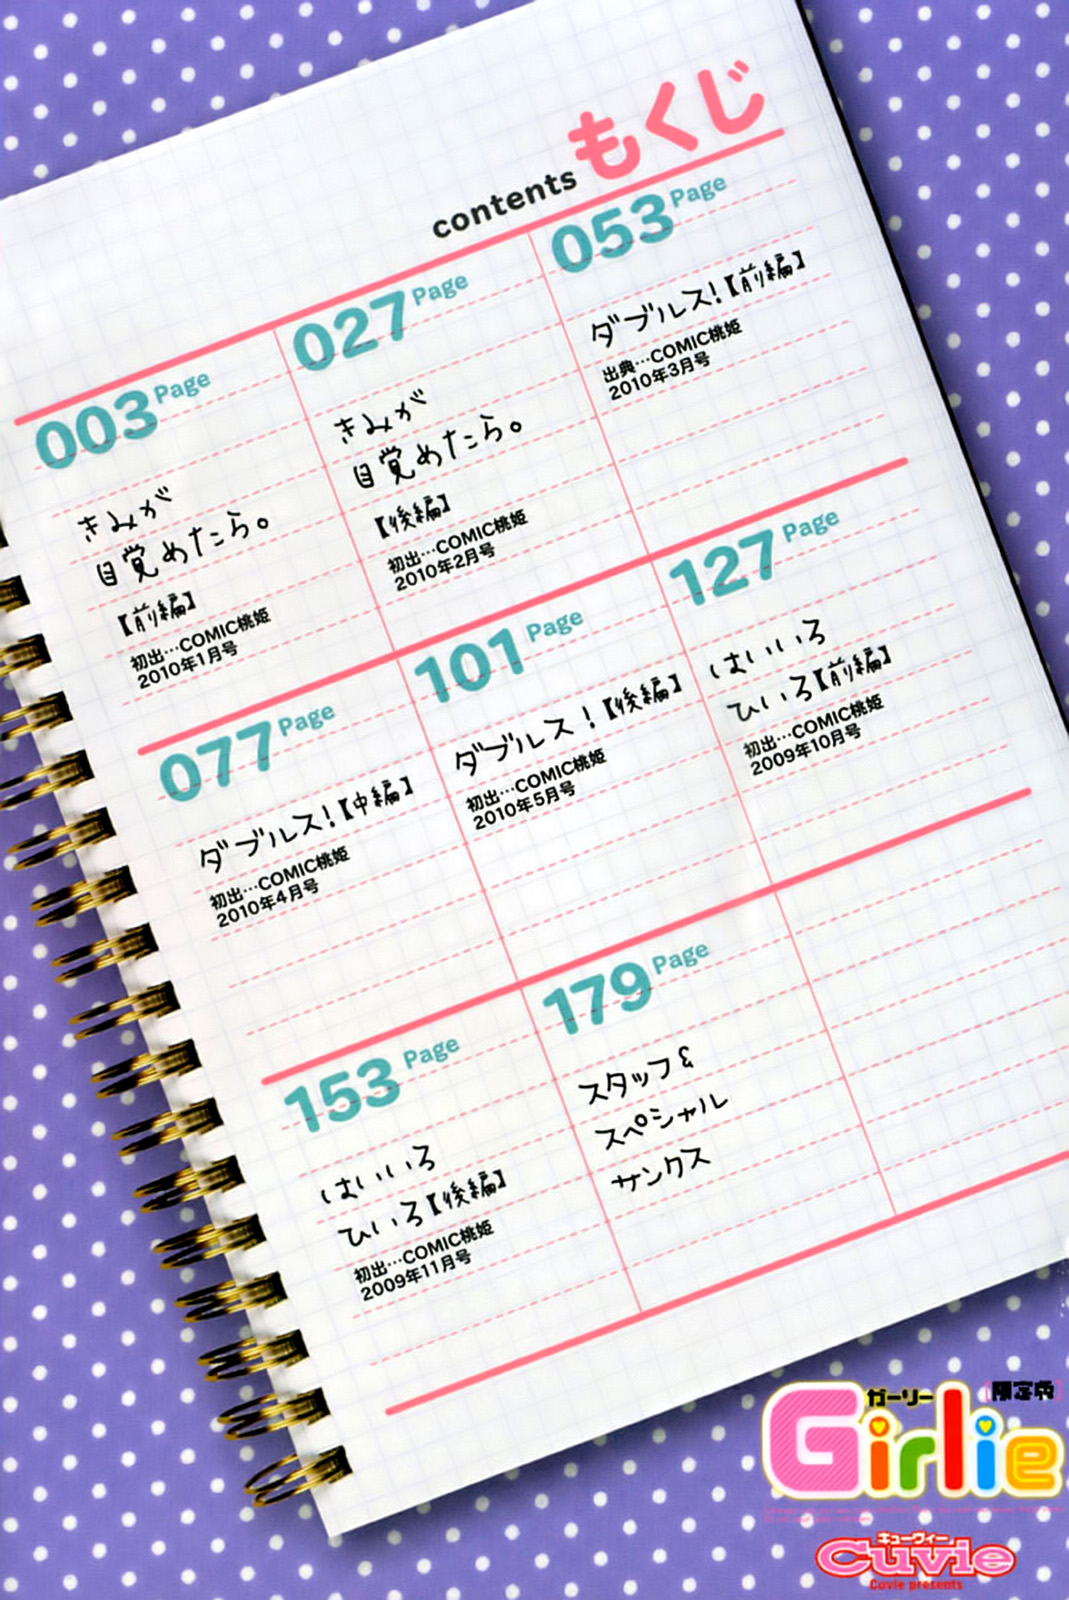 もくじ
contents
003 Page
きみが
目覚めたら。
【前編】
初出…COMIC桃姫
2010年1月号
027 Page
きみが
目覚めたら。
【後編】
初出…COMIC桃姫
2010年2月号
053 Page
ダブルス!【前編】
出典…COMIC桃姫
2010年3月号
077 Page
ダブルス!【中編】
初出…COMIC桃姫
2010年4月号
101 Page
ダブルス!【後編】
初出…COMIC桃姫
2010年5月号
127 Page
はいいろ
ひいろ【前編】
初出…COMIC桃姫
2009年10月号
153 Page
はいいろ
ひいろ【後編】
初出…COMIC桃姫
2009年11月号
179 Page
スタッフ&
スペシャル
サンクス
ガーリー
[限定版]
Girlie
キューヴィー
Cuvie
Cuvie presents